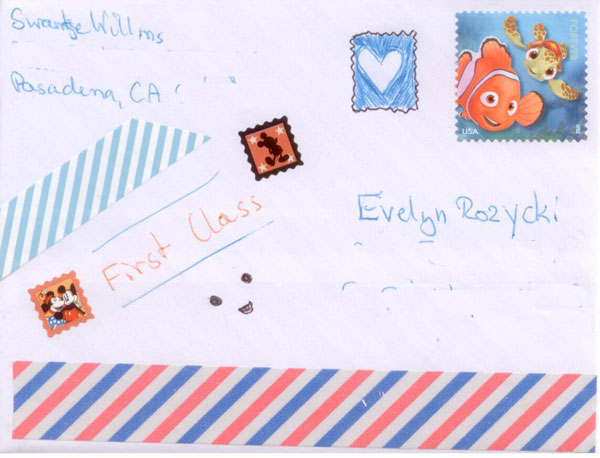 Swantje Willms
Pasadena, CA
FOREVER
USA
First Class
Evelyn Rozycki